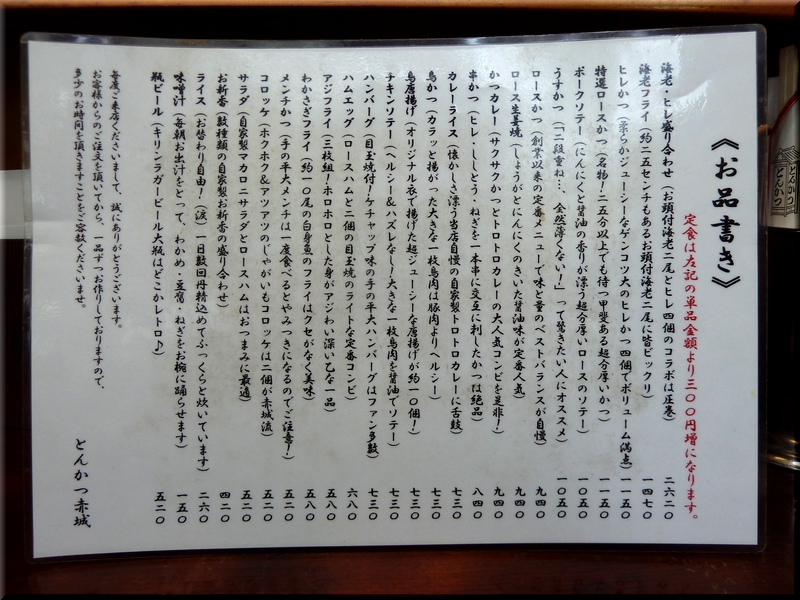 《お品書き》
定食は左記の単品金額より三〇〇円増になります。
海老・ヒレ盛り合わせ（お頭付海老二尾とヒレ四個のコラボは圧巻）　二六二〇
海老フライ（約二五センチもあるお頭付海老二尾に皆ビックリ）　一四七〇
ヒレかつ（柔らかジューシーなゲンコツ大のヒレかつ四個でボリューム満点）　一一五〇
特選ロースかつ（名物！二五分以上でも待つ甲斐ある超分厚いかつ）　一一五〇
ポークソテー（にんにくと醤油の香りが漂う超分厚いロースのソテー）　一〇五〇
うすかつ（「二段重ね…、全然薄くない！」って驚きたい人にオススメ）　一〇五〇
ロースかつ（創業以来の定番メニューで味と量のベストバランスが自慢）　九四〇
ロース生姜焼（しょうがとにんにくのきいた醤油味が定番人気）　九四〇
かつカレー（サクサクかつとトロトロカレーの大人気コンビを是非！）　九四〇
串かつ（ヒレ・ししとう・ねぎを一本串に交互に刺したかつは絶品）　八四〇
カレーライス（懐かしさ漂う当店自慢の自家製トロトロカレーに舌鼓）　七三〇
鳥かつ（カラッと揚がった大きな一枚鳥肉は豚肉よりヘルシー）　七三〇
鳥唐揚げ（オリジナル衣で揚げた超ジューシーな唐揚げが約一〇個！）　七三〇
チキンソテー（ヘルシー&ハズレなし〜大きな一枚鳥肉を醤油でソテー）　七三〇
ハンバーグ（目玉焼付！ケチャップ味の手の平大ハンバーグはファン多数）　七三〇
ハムエッグ（ロースハムと二個の目玉焼のライトな定番コンビ）　六八〇
アジフライ（三枚組！ホロホロとした身がアジわい深い乙な一品）　五八〇
わかさぎフライ（約一〇尾の白身魚のフライはクセがなく美味）　五八〇
メンチかつ（手の平大メンチは一度食べるとやみつきになるのでご注意！）　五二〇
コロッケ（ホクホク&アツアツのじゃがいもコロッケは二個が赤城流）　五二〇
サラダ（自家製マカロニサラダとロースハムはおつまみに最適）　五二〇
お新香（数種類の自家製お新香の盛り合わせ）　四二〇
ライス（お替わり自由！（渡）一日数回丹精込めてふっくらと炊いています）　二六〇
味噌汁（毎朝お出汁をとって、わかめ・豆腐・ねぎをお椀に踊らせます）　一五〇
瓶ビール（キリンラガービール大瓶はどこかレトロ♪）　五二〇
毎度ご来店くださいまして、誠にありがとうございます。
お客様からのご注文を頂いてから、一品ずつお作りしておりますので、
多少のお時間を頂きますことをご容赦くださいませ。
とんかつ赤城
とんかつ
とんかつ